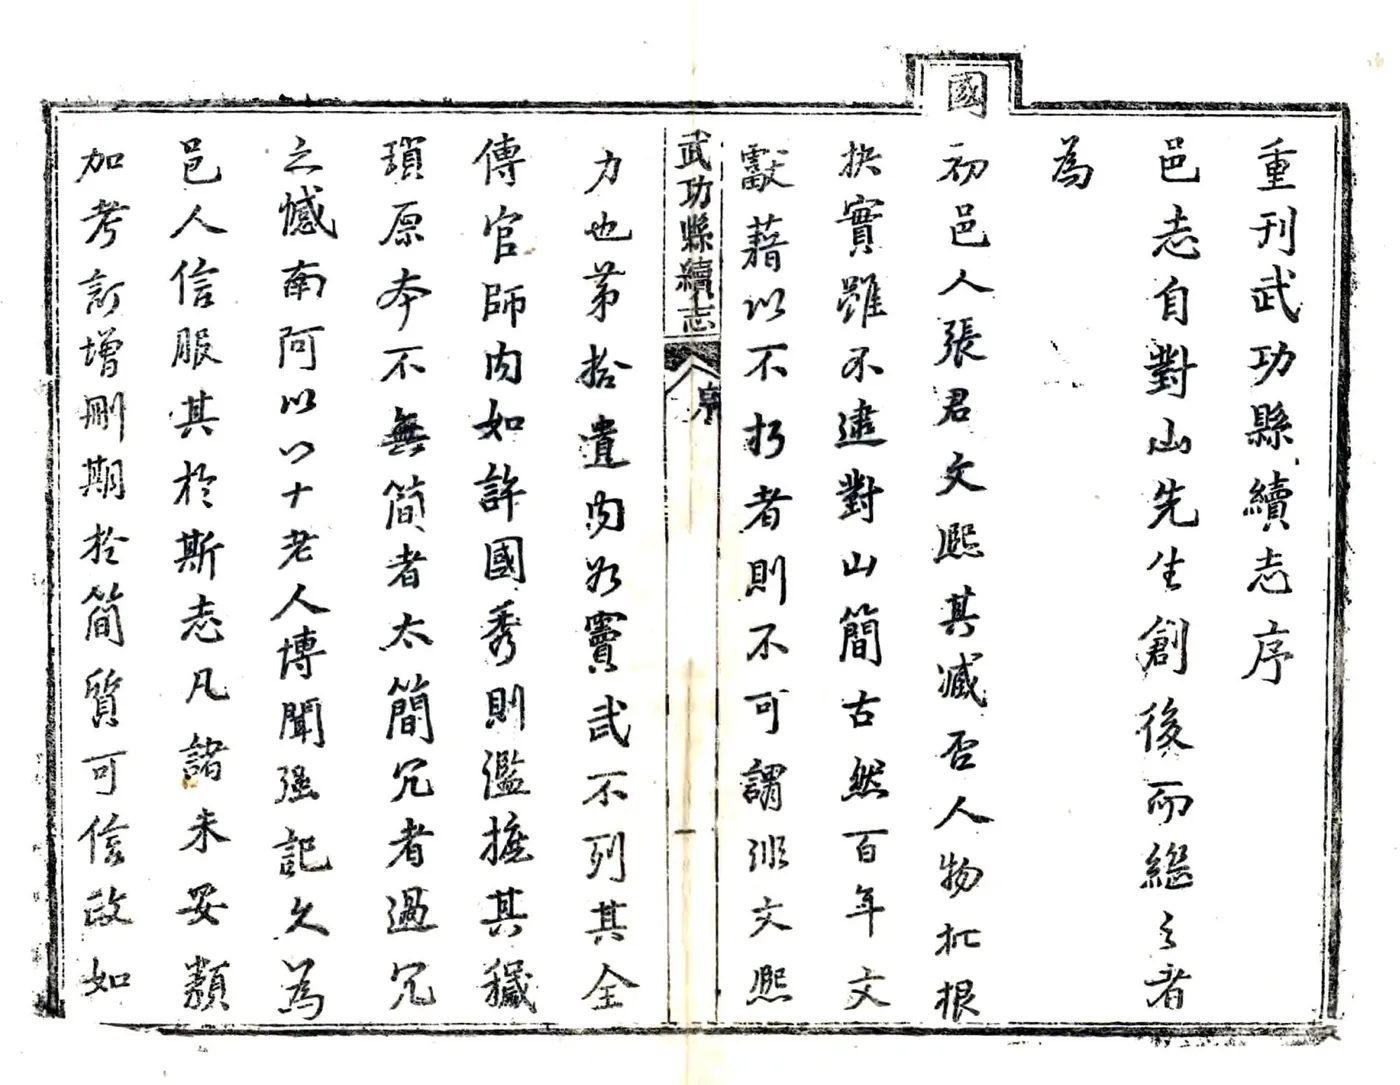 重刊武功縣續志序
邑志自對山先生創後而繼之者
為
國
初邑人張君文熙其臧否人物批根
抉實雖不逮對山簡古然百年文
獻藉以不朽者則不可謂非文熙
武功縣續志
序
一
力也第拾遺內如竇武不列其全
傳官師內如許國秀則濫摭其穢
瑣原本不無簡者太簡冗者過冗
之憾南阿以八十老人博聞强記久為
邑人信服其於斯志凡諸未妥類
加考訂增刪期於簡質可信改如